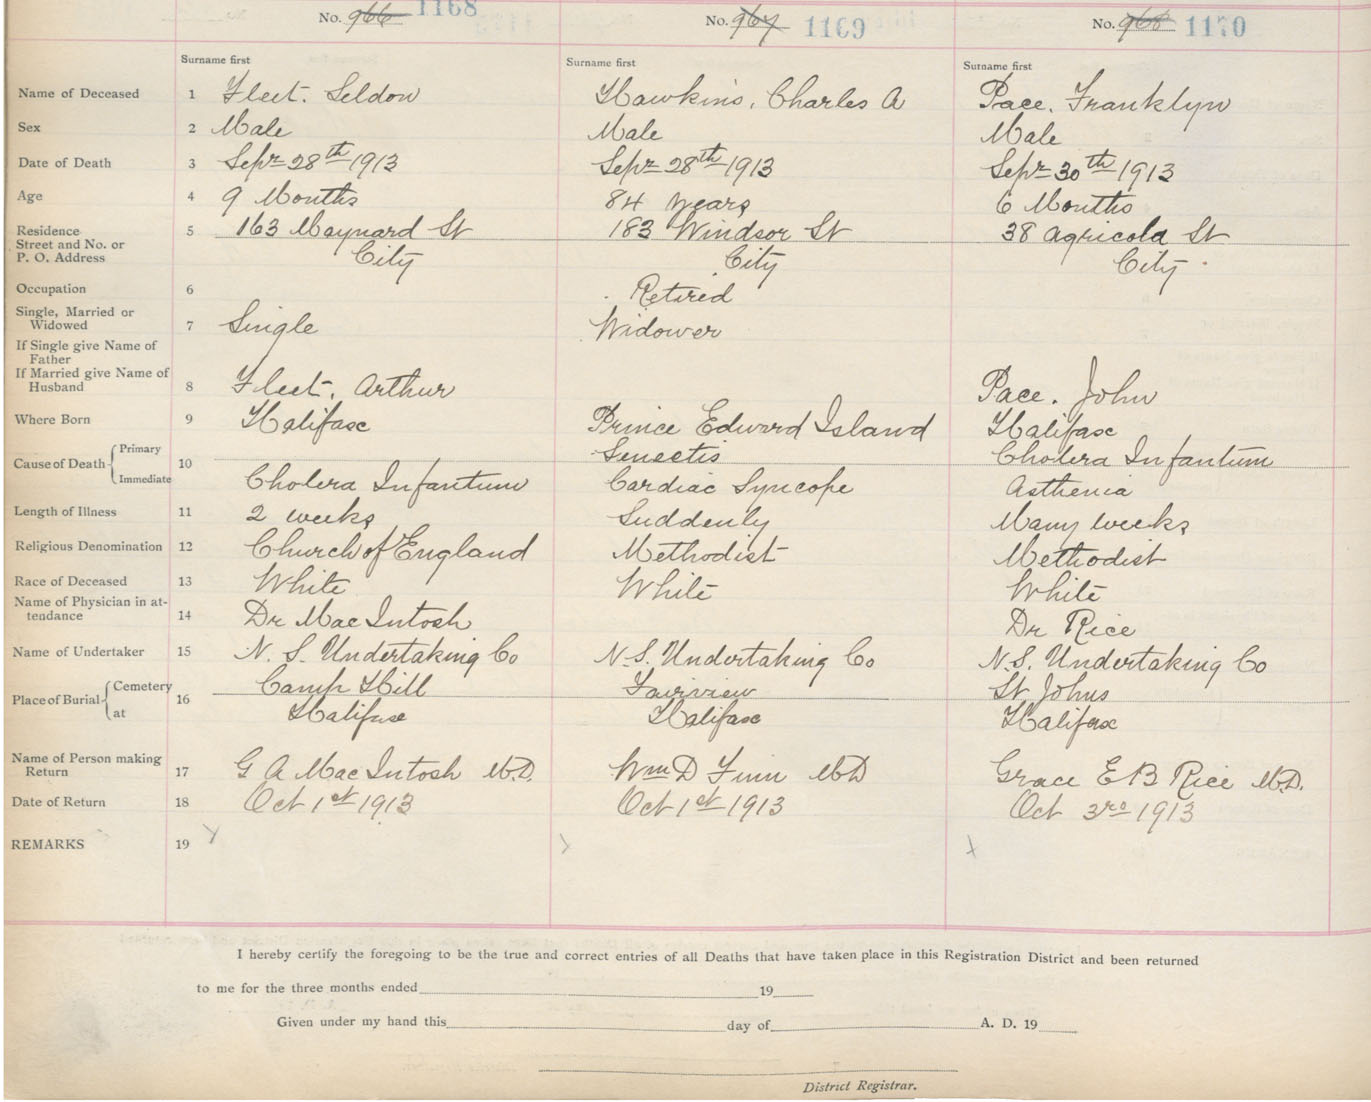 No. 966 1168 No. 967 1169 No. 968 1170
Surname first Surname first Surname first
Name of Deceased 1 Fleet. Seldon Hawkins, Charles A Pace. Franklyn
Sex 2 Male Male Male
Date of Death 3 Sepr 28th 1913 Sepr 28th 1913 Sepr 30th 1913
Age 4 9 Months 84 years 6 Months
Residence 5 163 Maynard St 183 Windsor St 38 Agricola St
Street and No. or
P. O. Address City City City
Occupation 6 Retired
Single, Married or
Widowed 7 Single Widower
If Single give Name of
Father
If Married give Name of
Husband 8 Fleet, Arthur Pace. John
Where Born 9 Halifax Prince Edward Island Halifax
Cause of Death Primary 10 Senectis Cholera Infantum
Immediate Cholera Infantum Cardiac Syncope Asthenia
Length of Illness 11 2 weeks Suddenly Many weeks
Religious Denomination 12 Church of England Methodist Methodist
Race of Deceased 13 White White White
Name of Physician in at-
tendance 14 Dr MacIntosh Dr Rice
Name of Undertaker 15 N. S. Undertaking Co N.S. Undertaking Co N.S. Undertaking Co
Place of Burial Cemetery 16 Camp Hill Fairview St Johns
at Halifax Halifax Halifax
Name of Person making
Return 17 G A MacIntosh M.D. Wm D Finn MD Grace E B Rice M.D.
Date of Return 18 Oct 1st 1913 Oct 1st 1913 Oct 3rd 1913
REMARKS 19
I hereby certify the foregoing to be the true and correct entries of all Deaths that have taken place in this Registration District and been returned
to me for the three months ended 19
Given under my hand this day of A. D. 19
District Registrar.